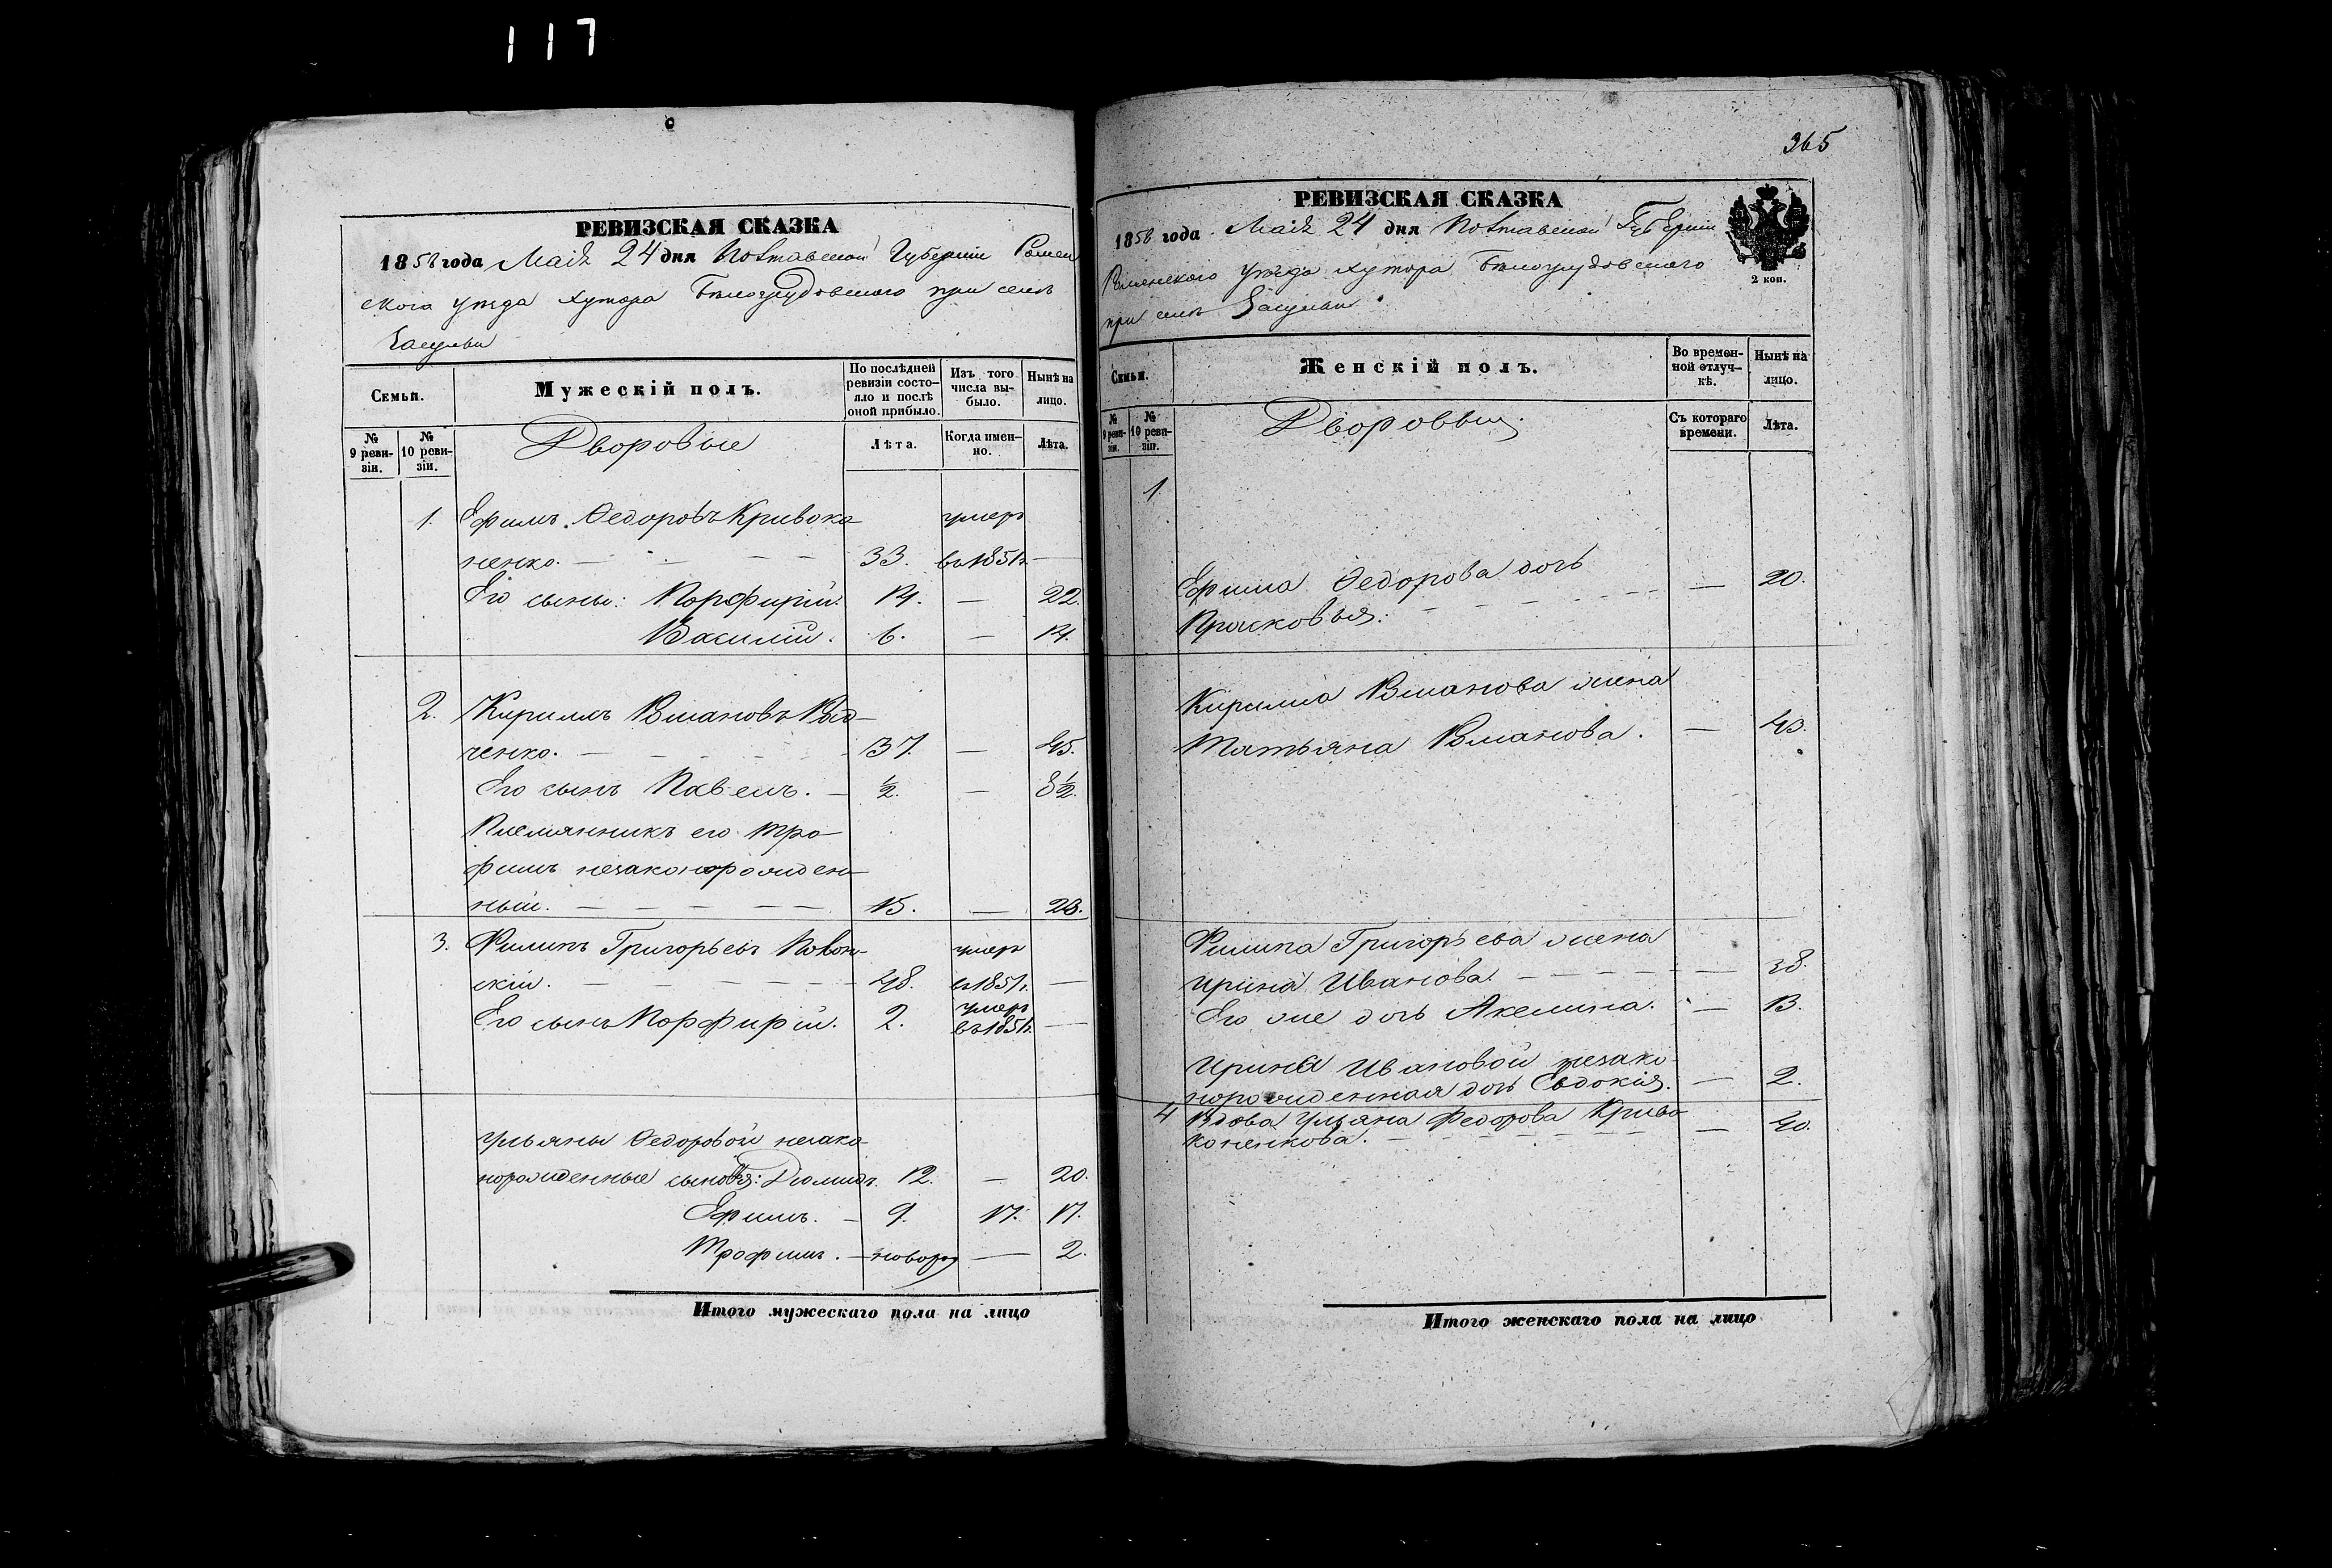 117
РЕВИЗСКАЯ СКАЗКА
1858 года Маія 24 дня Полтавской Губерніи Ромен
ского уѣзда хутора при селѣ
Мужескій полъ.
Семьи.
По послѣдней ревизіи состояло и послѣ оной прибыло.
Изъ того числа выбыло.
Нынѣ на лицо.
№ 9 ревизіи.
№ 10 ревизіи.
Дворовые
Лѣта.
Когда именно.
Лѣта.
1. Ефимъ Ѳедоровъ Кривоко умеръ
ненко. — — — 33. въ 1851 г. —
Его сыны: Порфирій. 14. — 22.
Василій. 6. — 14.
2. Кириллъ
ченко. — 37. — 45.
Его сынъ Павелъ. — ½. — 8½.
Племянникъ его Тро
фимъ незаконорожден
ный. — — — — — 15. — 23.
3. Филипъ Григорьевъ умеръ
скій. — — — — — 48. въ 1851 г. —
Его сынъ Порфирій. 2. умеръ въ 1851 г. —
Ульяны Ѳедоровой незако
норожденные сыновья: 12. — 20.
Ефимъ. — 9. 17. 17.
Трофимъ. — новорож — 2.
Итого мужескаго пола на лицо
365
РЕВИЗСКАЯ СКАЗКА
1858 года Маія 24 дня Полтавской Губерніи
Роменского уѣзда хутора
при селѣ
2 коп.
Семьи.
Женскій полъ.
Во временной отлучкѣ.
Нынѣ на лицо.
№ 9 ревизіи.
№ 10 ревизіи.
Дворовыя
Съ котораго времени.
Лѣта.
1.
Ефима Ѳедорова дочь
Прасковья. — — — — 20.
Кирилла жена
Татьяна — 43.
Филипа Григорьева жена
Ирина Иванова. — — — — — 38.
Его же дочь Акелина. — 13.
Ирины Ивановой незако
норожденная дочь Евдокія. — 2.
4 Вдова Ульяна Федорова Криво
коненкова. — — — — — 40.
Итого женскаго пола на лицо